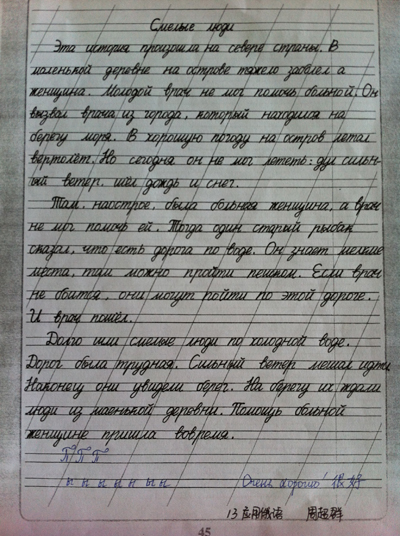 Смелые люди
Эта история произошла на севере страны. В
маленькой деревне на острове тяжело заболел а
женщина. Молодой врач не мог помочь больной. Он
вызвал врача из города, который находился на
берегу моря. В хорошую погоду на остров летал
вертолёт. Но сегодня он не мог лететь: дул сильн-
ый ветер. шёл дождь и снег.
Там, наострове, была больная женщина, а врач
не мог помочь ей. Тогда один старый рыбак
сказал, что есть дорога по воде. Он знает мелкие
места, там можно пройти пешком. Если врач
не боится, они могут пойти по этой дороге.
И врач пошёл.
Долго шли смелые люди по холодной воде.
Дорог была трудная. Сильный ветер мешал идти
Наконец они увидели берег. На берегу их ждали
люди из маенькой деревни. Помощь больной
женщине пришла вовремя.
П П П
ы ы ы ы ы ы ы Очень хорошо! 很好
13 应用俄语 周超群
45